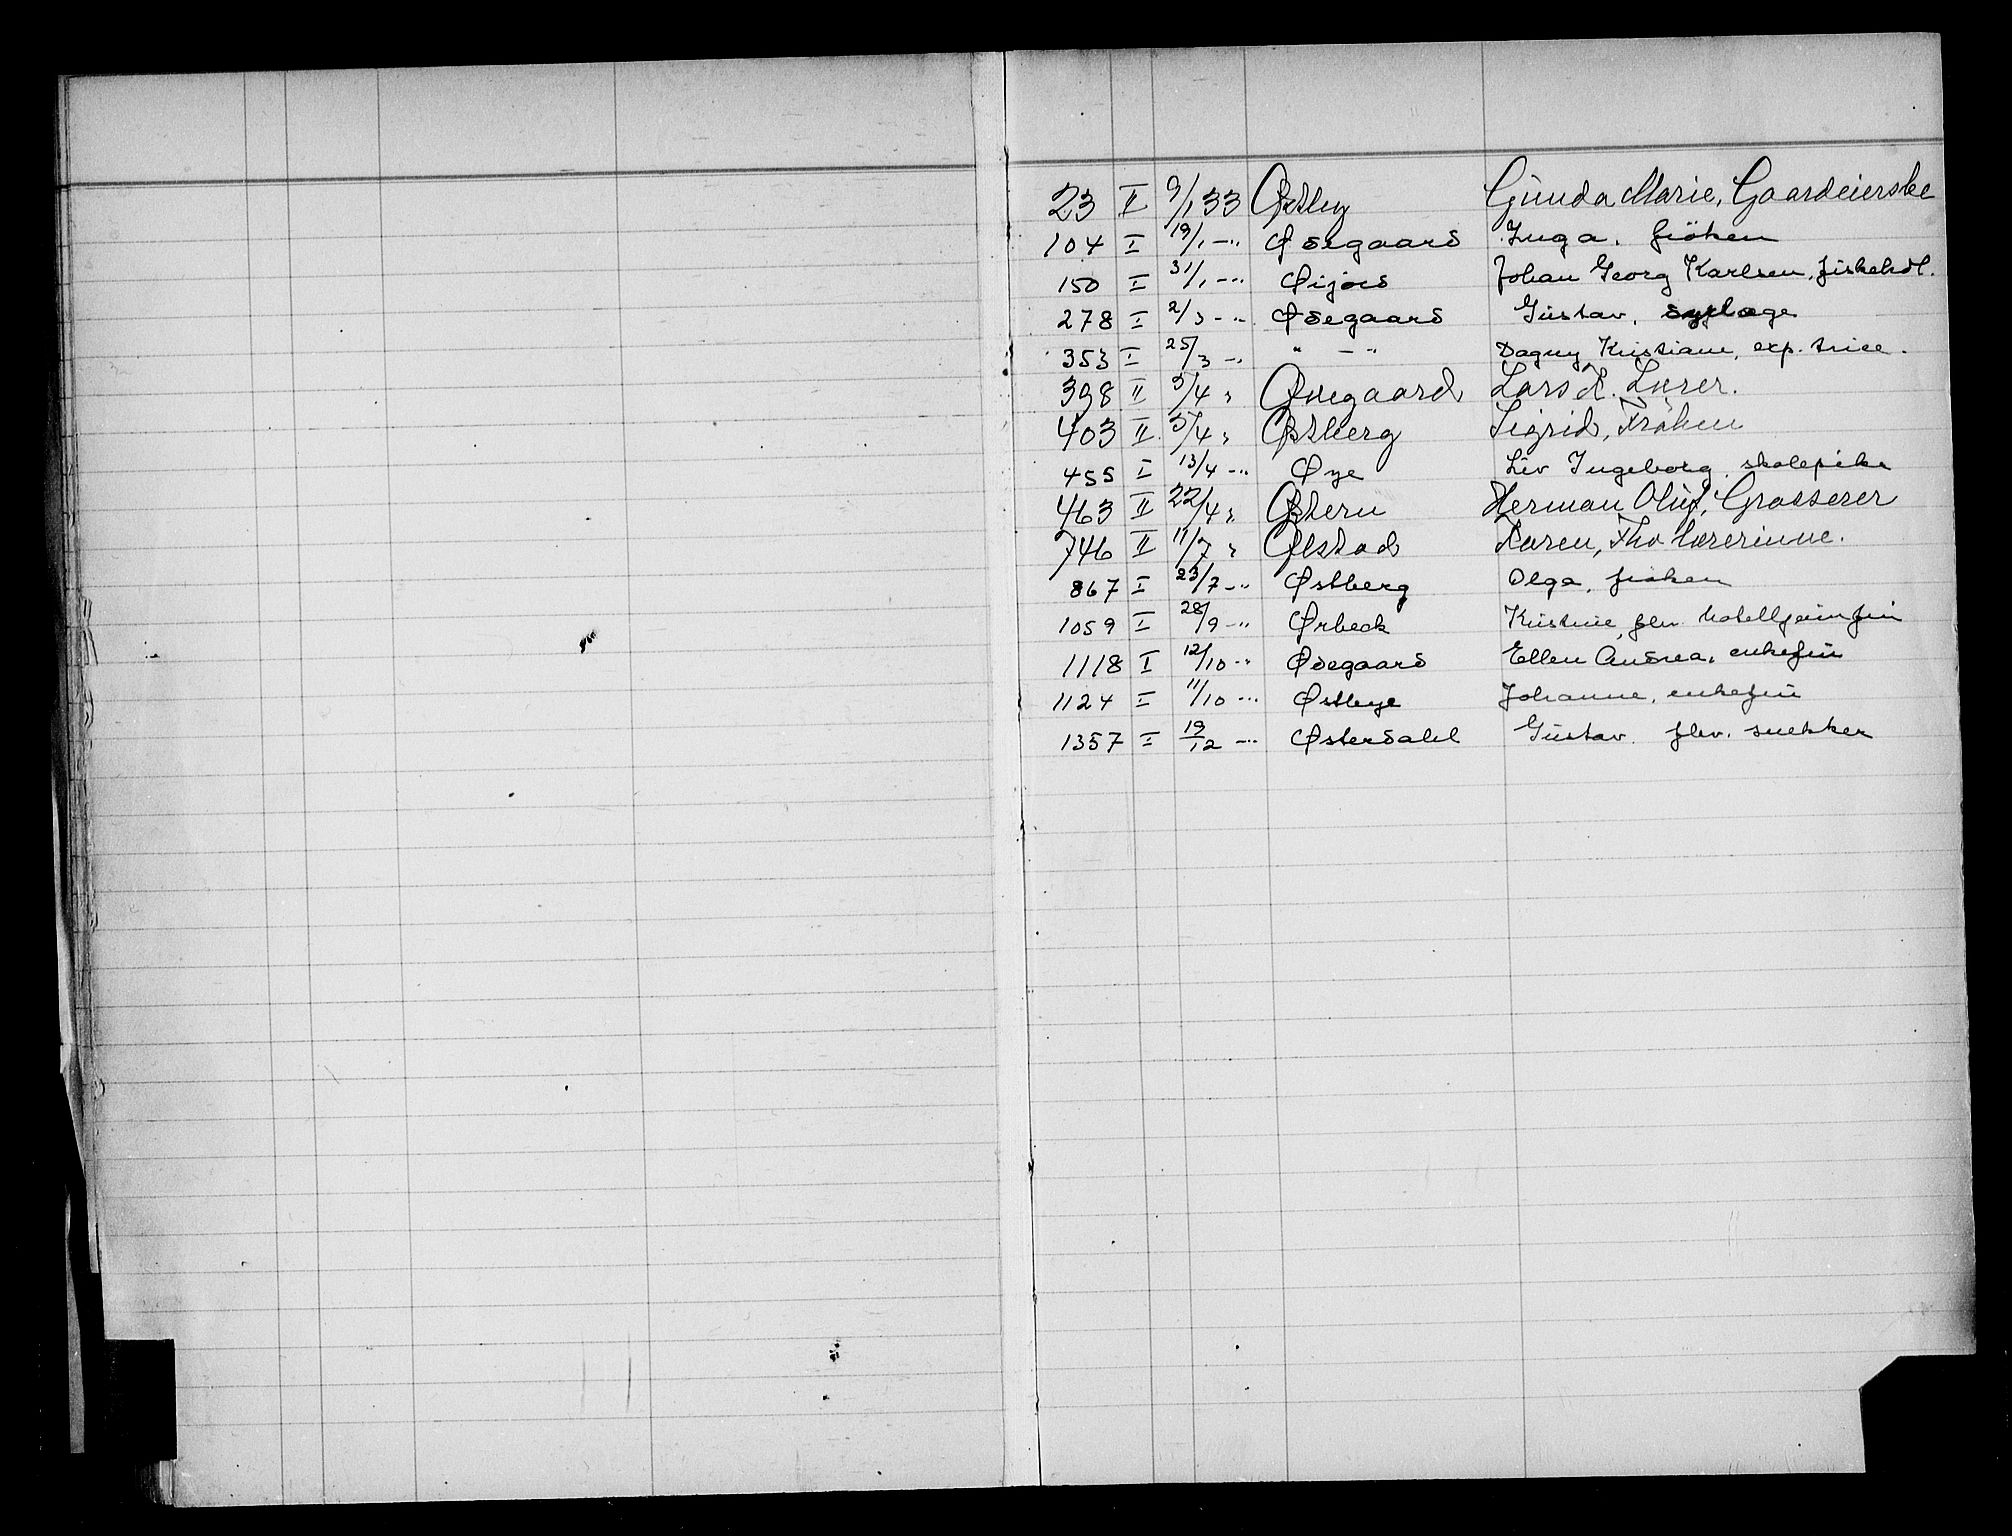 23 II 9/1 33 Østby Gunda Marie, Gaardeierske
104 I 19/1 -"- Ødegaard Inga. frøken
150 I 31/1 -"- Øijord Johan Georg Karlsen, fiskehdl.
278 I 2/3 -"- Ødegaard Gustav,
353 I 25/3 -"- " -"- Dagny Kristiane, exp. trice.
398 II 5/4 " Ødegaard Lars K. Lærer.
403 II 5/4 " Østberg Sigrid, Frøken
455 I 13/4 -"- Øye Liv Ingeborg, skolepike
463 II 22/4 " Østern Herman Oluf, Grosserer
746 II 11/7 " Ølstad Karen, Fhv lærerinne.
867 I 23/7 -"- Østberg Olga, frøken
1059 I 28/9 -"- Ørbeck Kristine, fhv.
1118 I 12/10 -"- Ødegaard Ellen Andrea, enkefru
1124 I 11/10 -"- Østbye Johanne, enkefru
1357 I 19/12 -"- Østerdahl Gustav. fhv. snekker